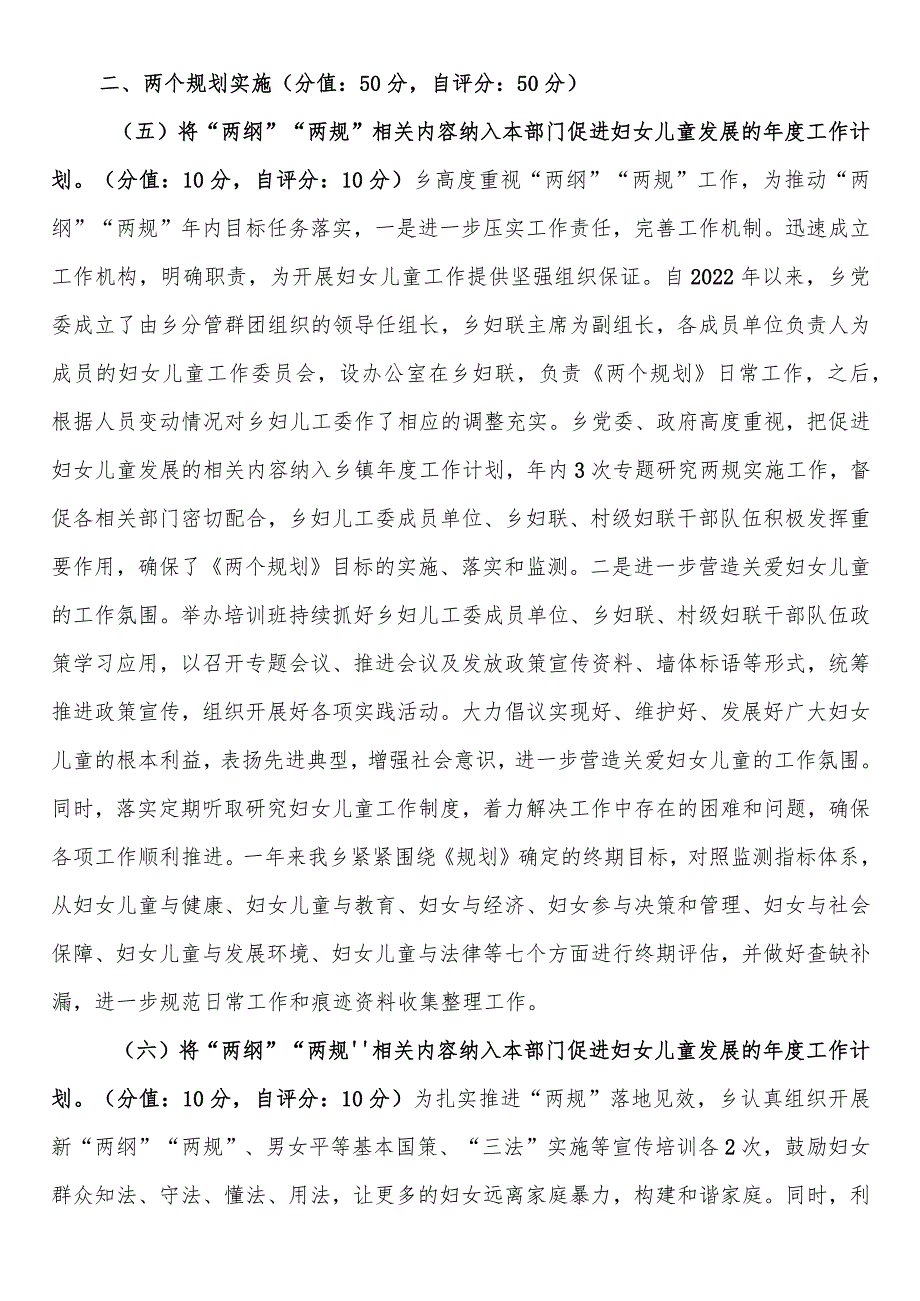 二、两个规划实施（分值：50 分，自评分：50 分）
（五）将“两纲”“两规”相关内容纳入本部门促进妇女儿童发展的年度工作计
划。（分值：10 分，自评分：10 分）乡高度重视“两纲”“两规”工作，为推动“两
纲”“两规”年内目标任务落实，一是进一步压实工作责任，完善工作机制。迅速成立
工作机构，明确职责，为开展妇女儿童工作提供坚强组织保证。自 2022 年以来，乡党
委成立了由乡分管群团组织的领导任组长，乡妇联主席为副组长，各成员单位负责人为
成员的妇女儿童工作委员会，设办公室在乡妇联，负责《两个规划》日常工作，之后，
根据人员变动情况对乡妇儿工委作了相应的调整充实。乡党委、政府高度重视，把促进
妇女儿童发展的相关内容纳入乡镇年度工作计划，年内 3 次专题研究两规实施工作，督
促各相关部门密切配合，乡妇儿工委成员单位、乡妇联、村级妇联干部队伍积极发挥重
要作用，确保了《两个规划》目标的实施、落实和监测。二是进一步营造关爱妇女儿童
的工作氛围。举办培训班持续抓好乡妇儿工委成员单位、乡妇联、村级妇联干部队伍政
策学习应用，以召开专题会议、推进会议及发放政策宣传资料、墙体标语等形式，统筹
推进政策宣传，组织开展好各项实践活动。大力倡议实现好、维护好、发展好广大妇女
儿童的根本利益，表扬先进典型，增强社会意识，进一步营造关爱妇女儿童的工作氛围。
同时，落实定期听取研究妇女儿童工作制度，着力解决工作中存在的困难和问题，确保
各项工作顺利推进。一年来我乡紧紧围绕《规划》确定的终期目标，对照监测指标体系，
从妇女儿童与健康、妇女儿童与教育、妇女与经济、妇女参与决策和管理、妇女与社会
保障、妇女儿童与发展环境、妇女儿童与法律等七个方面进行终期评估，并做好查缺补
漏，进一步规范日常工作和痕迹资料收集整理工作。
（六）将“两纲”“两规''相关内容纳入本部门促进妇女儿童发展的年度工作计
划。（分值：10 分，自评分：10 分）为扎实推进“两规”落地见效，乡认真组织开展
新“两纲”“两规”、男女平等基本国策、“三法”实施等宣传培训各 2 次，鼓励妇女
群众知法、守法、懂法、用法，让更多的妇女远离家庭暴力，构建和谐家庭。同时，利